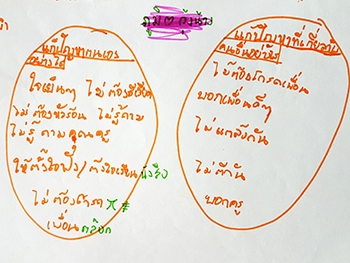 แก้ปัญหาตนเอง
อย่างไร
ใจเย็นๆ ไม่ต้อง
ไม่ต้องหัวร้อน ไม่รู้ถาม
ไม่รู้ ถาม คุณครู
ให้ตั้งใจฟัง/ตั้งใจเรียน
ไม่ต้องโกรธ
เพื่อน
แก้ปัญหาที่เกี่ยวกับ
คนอื่นอย่างไร
ไม่ต้องโกรธเพื่อน
บอกเพื่อนดีๆ
ไม่แกล้งกัน
ไม่ตีกัน
บอกครู